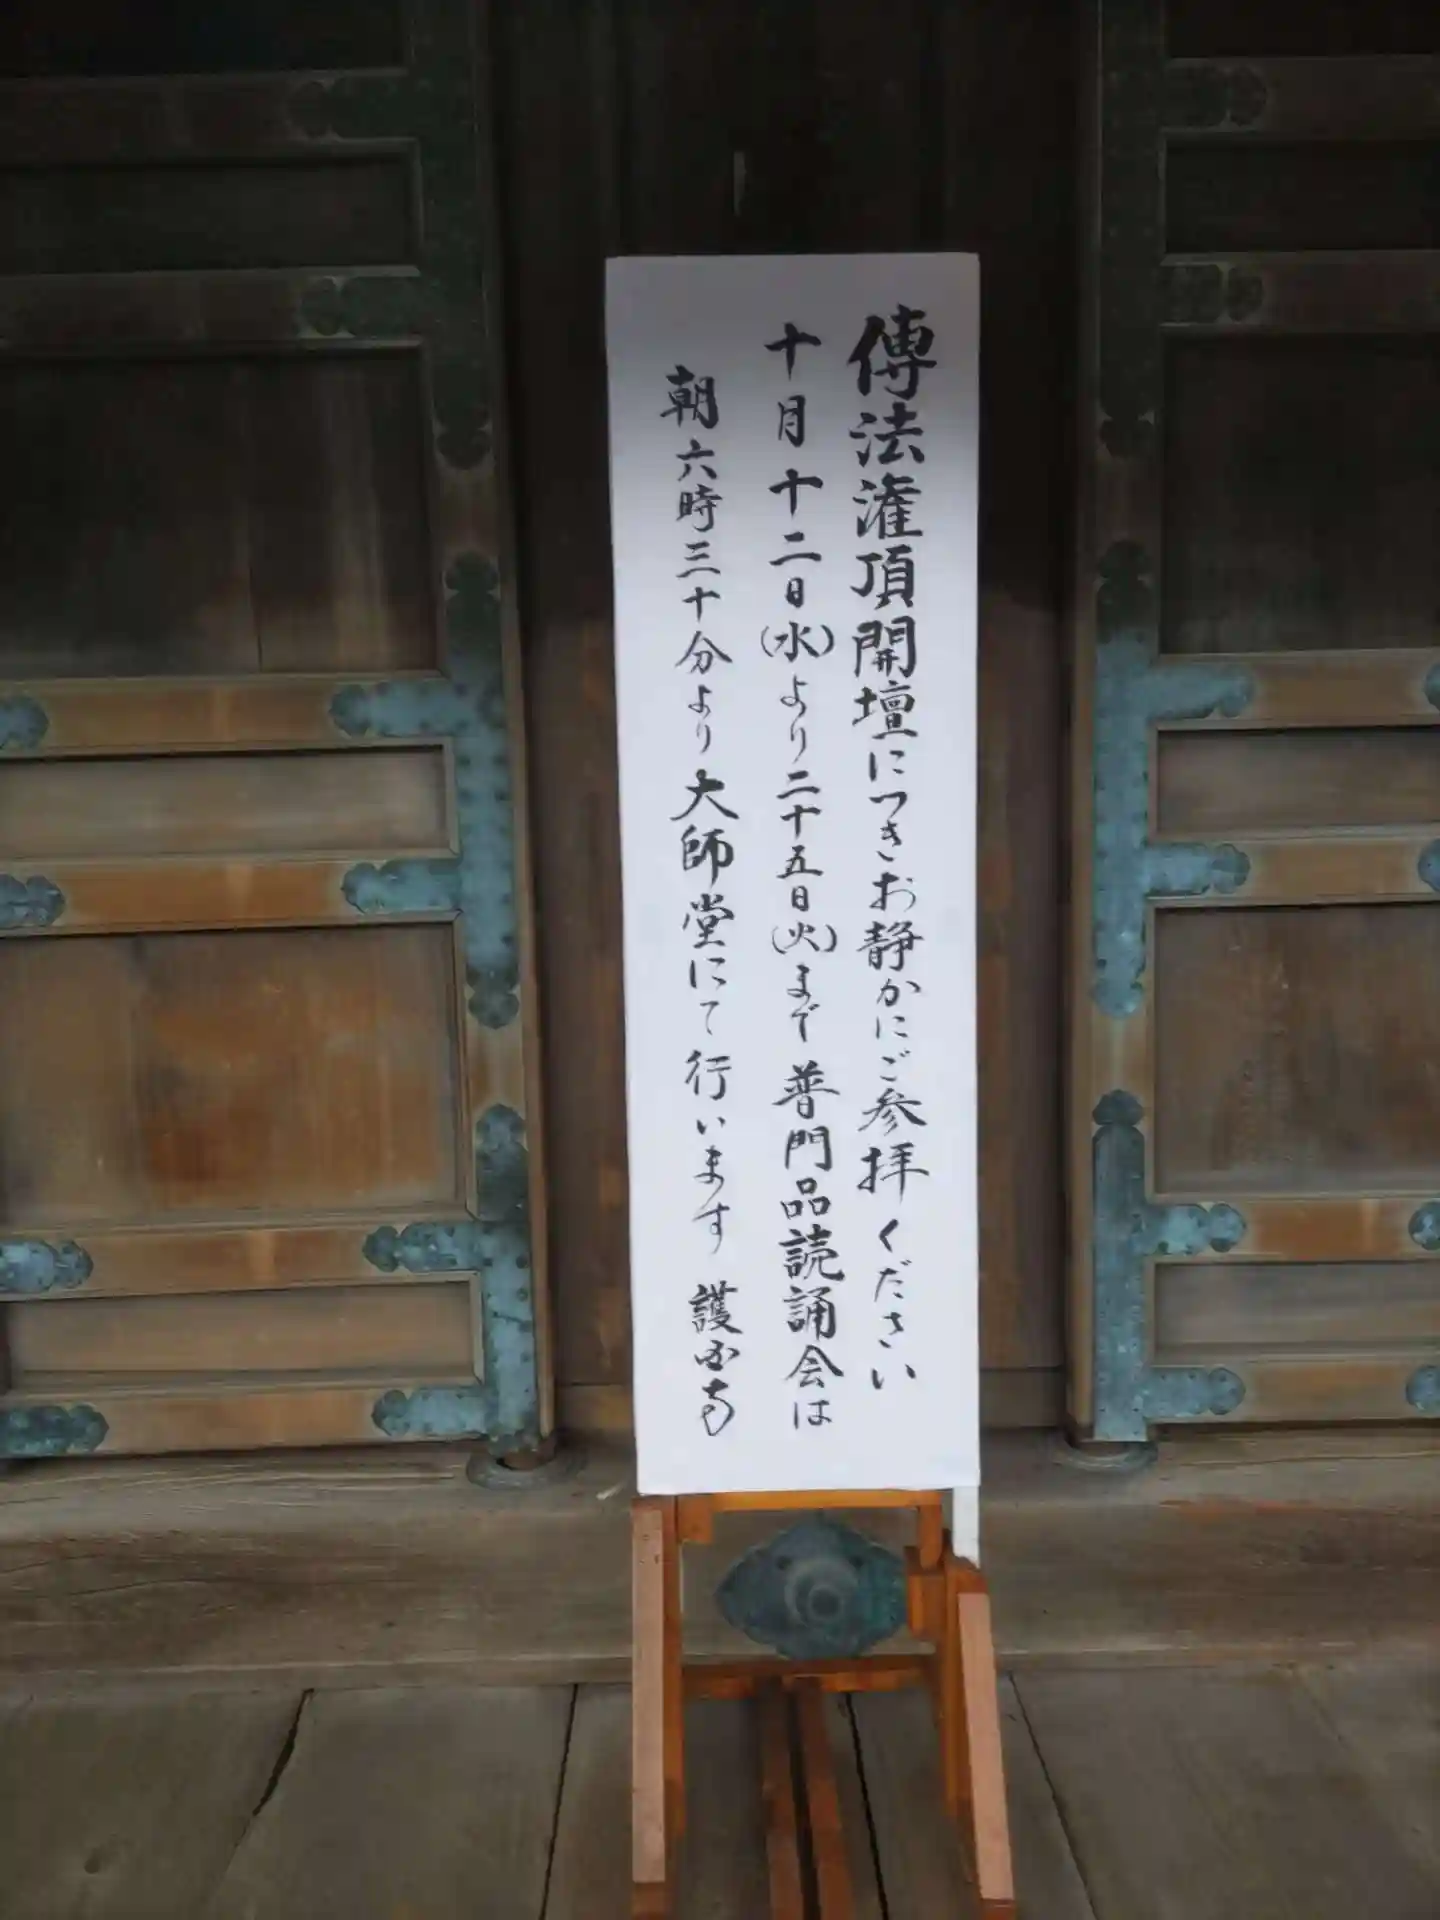 傳法灌頂開壇につきお静かにご参拝ください
十月十二日(水)より二十五日(火)まで普門品読誦会は
朝六時三十分より大師堂にて行います 護国寺